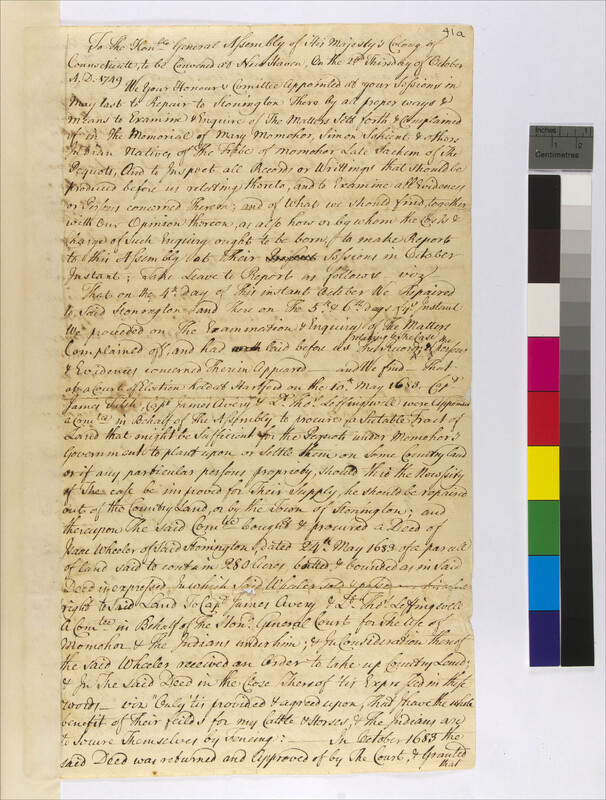 41a
To the Honble General Assembly of His Majesty's Colony of
Connecticutt, to be Convened at New Haven, On the 2nd Thirsday of October
A. D. 1749
We Your Honours Comittee Appointed at your Sessions in
May last to Repair to Stonington There by all proper ways &
means to Examine & Enquire of The Matters Sett Forth & Complained
of in the Memorial of Mary Momohor, Simon Sokient & others
Indian Natives of The Tribe of Momohor Late Sachem of The
Pequots, And to Inspect all Records or Writtings that Should be
produced before us relateing thereto, and to Examine all Evidences
or Persons concerned Therein; and of what we should find, together
with Our Opinion thereon, as also how or by whom the Costs &
charge of Such Enquiry ought to be born, to make Report
to this Assembly at Their Sessions in October
Instant; Take Leave to Report as follows viz
That on the 4th day of This instant October We Repaired
to Said Stonington and there on The 5th & 6th days of sd Instant
We proceeded on The Examination & Enquiry of The Matters
Complained off; and had laid before us relateing to The Case The Records & the persons
& Evidences concerned Therein Appeared — and We find — That
at a Court of Election held at Hartford on the 10th May 1683. Capt
James Fitch, Capt James Avery & Lt Thos Leffingwell were Appointed
a Comtee in Behalf of The Assembly to procure a Sutable Tract of
Land that might be Sufficient for the Pequots under Momohor's
Government to plant upon or Settle them on Some Country land
or if any particular persons propriety, should thro the Nessessity
of The case be improved for Their Supply, he should be repaired
out of the Country Land, or by the Town of Stonington; and
thereupon The Said Comtee bought & procured a Deed of
Isaac Wheeler of Said Stonington, dated 24th May 1683 of a parcell
of land said to contain 280 Acres, butted & bounded as in said
Deed is expressed In which Said Wheeler
right to Said Land To Capt James Avery & Lt Thos Leffingwell
a Comtee in Behalf of The Honl General Court for The use of
Momohor & the Indians under him; & In Consideration thereof
the said Wheeler received an Order to take up Country Land;
& In The said Deed in the Close Thereof tis Expressed in these
words — viz "Only tis provided & agreed upon, That I have the whole
benefit of Their feilds for my Cattle & Horses, & the Indians are
to Secure Themselves by Fencing": — In October 1683 the
said Deed was returned and Approved of by The Court, & Granted
that
Inches 1 2
Centimetres